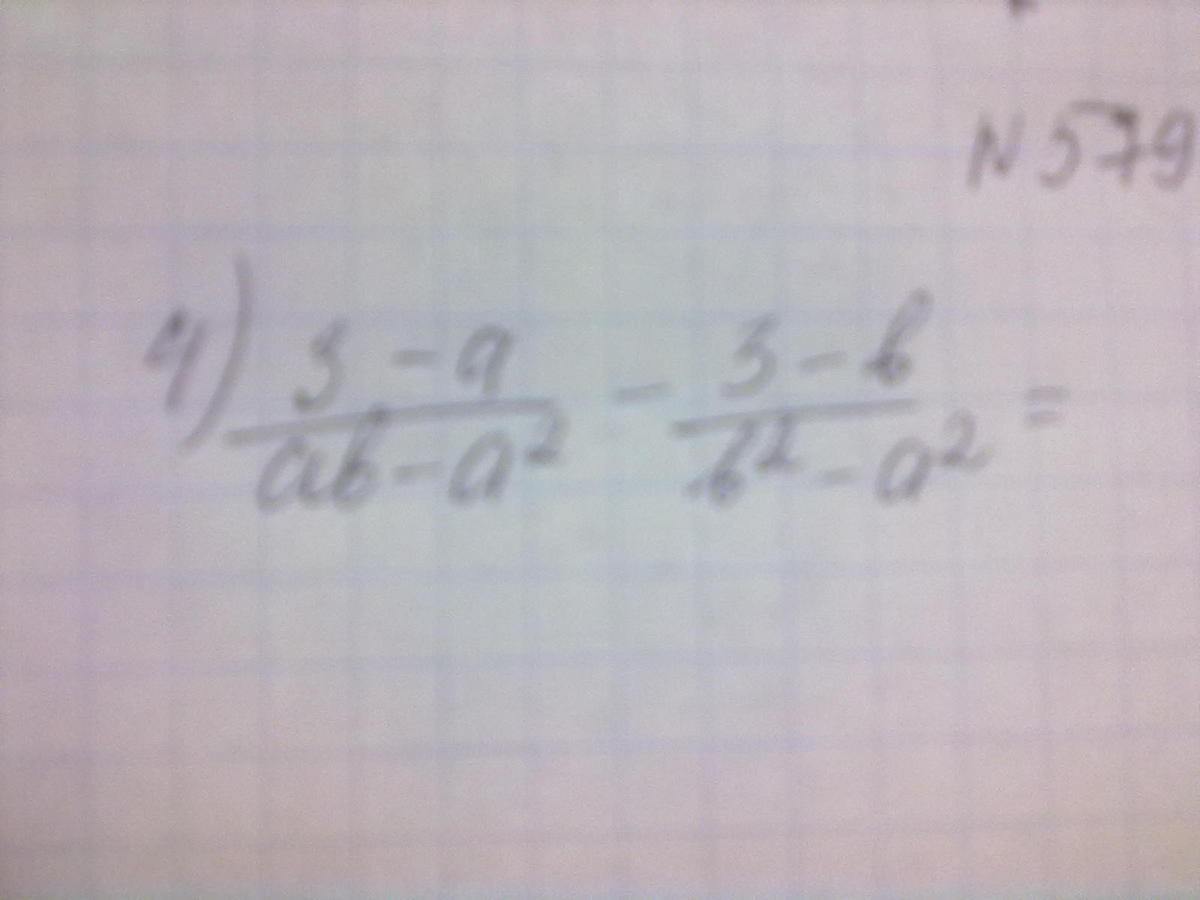 N 579
4) \frac{3-a}{ab-a^2} - \frac{3-b}{b^2-a^2} =